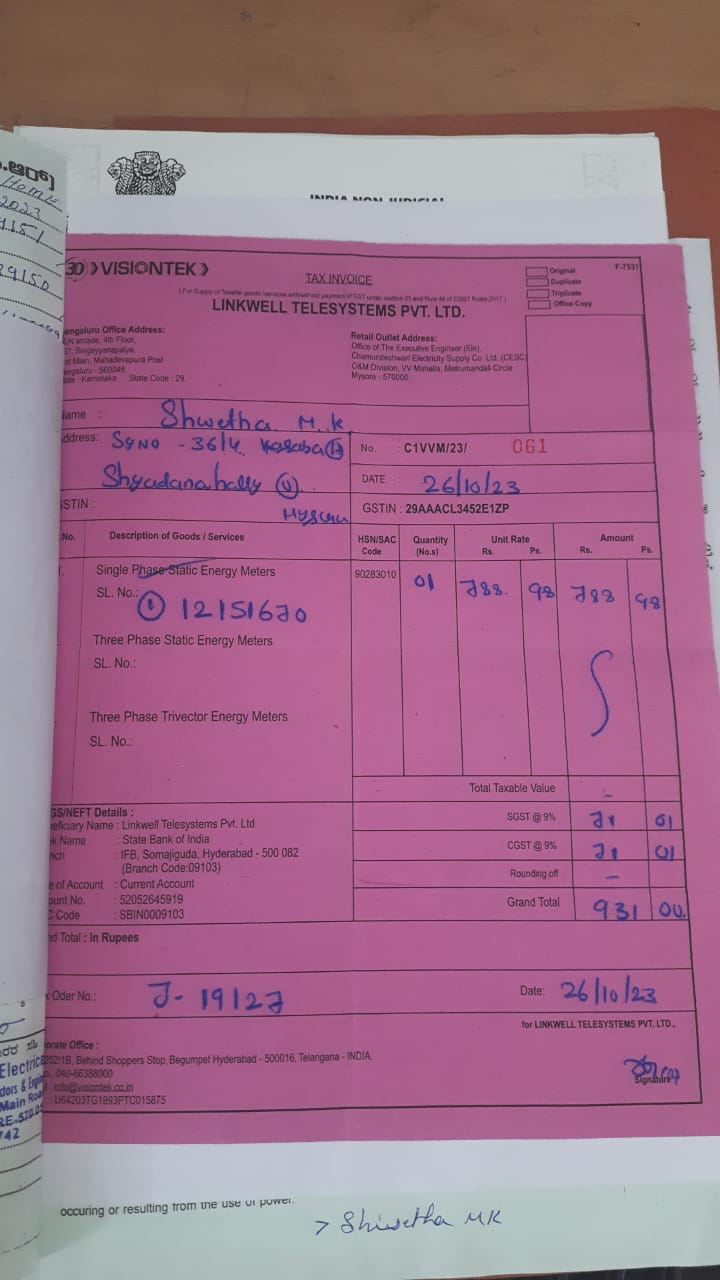 ಆರ್)
2023
9150
INDIA NON JUDICIAL
VISIONTEK
TAX INVOICE
(For Supply of Taxable goods /services with/without payment of GST under section 31 and Rule 46 of CGST Rules 2017)
LINKWELL TELESYSTEMS PVT. LTD.
Original
Duplicate
Triplicate
Office Copy
F-7531
engaluru Office Address:
LN arcade, 4th Floor,
57, Singayyanapalya,
nd Main, Mahadevapura Post
engaluru - 560048.
ate : Karnataka State Code : 29.
Retail Outlet Address:
Office of The Executive Engineer (Ele),
Chamundeshwari Electricity Supply Co. Ltd. (CESC)
O&M Division, VV Mohalla, Matrumandali Circle
Mysore - 570006.
Name : Shwetha. M.K
ddress: SYNO - 36/4. Kasaba (H)
Shyadanahally (V)
Mysuru
No. : C1VVM/23/ 061
DATE : 26/10/23
STIN :
GSTIN : 29AAACL3452E1ZP
.No. Description of Goods / Services HSN/SAC Code Quantity (No.s) Unit Rate Rs. Ps. Amount Rs. Ps.
Single Phase Static Energy Meters 90283010 01 788. 98 788 98
SL. No.: ① 12151670
Three Phase Static Energy Meters
SL. No.:
Three Phase Trivector Energy Meters
SL. No.:
Total Taxable Value -
GS/NEFT Details :
eficiary Name : Linkwell Telesystems Pvt. Ltd
k Name : State Bank of India
nch : IFB, Somajiguda, Hyderabad - 500 082
(Branch Code:09103)
e of Account : Current Account
ount No. : 52052645919
C Code : SBIN0009103
SGST @ 9% 71 01
CGST @ 9% 71 01
Rounding off -
Grand Total 931 00.
nd Total : In Rupees
Oder No.: J- 19127
Date: 26/10/23
for LINKWELL TELESYSTEMS PVT. LTD.,
Signature
orate Office :
252/1B, Behind Shoppers Stop, Begumpet Hyderabad - 500016, Telangana - INDIA.
: 040-66388000
: info@visiontek.co.in
: U64203TG1993PTC015875
Electrica
dors & Engi
Main Road
RE-570.0
742
occuring or resulting from the use of power.
> Shwetha MK